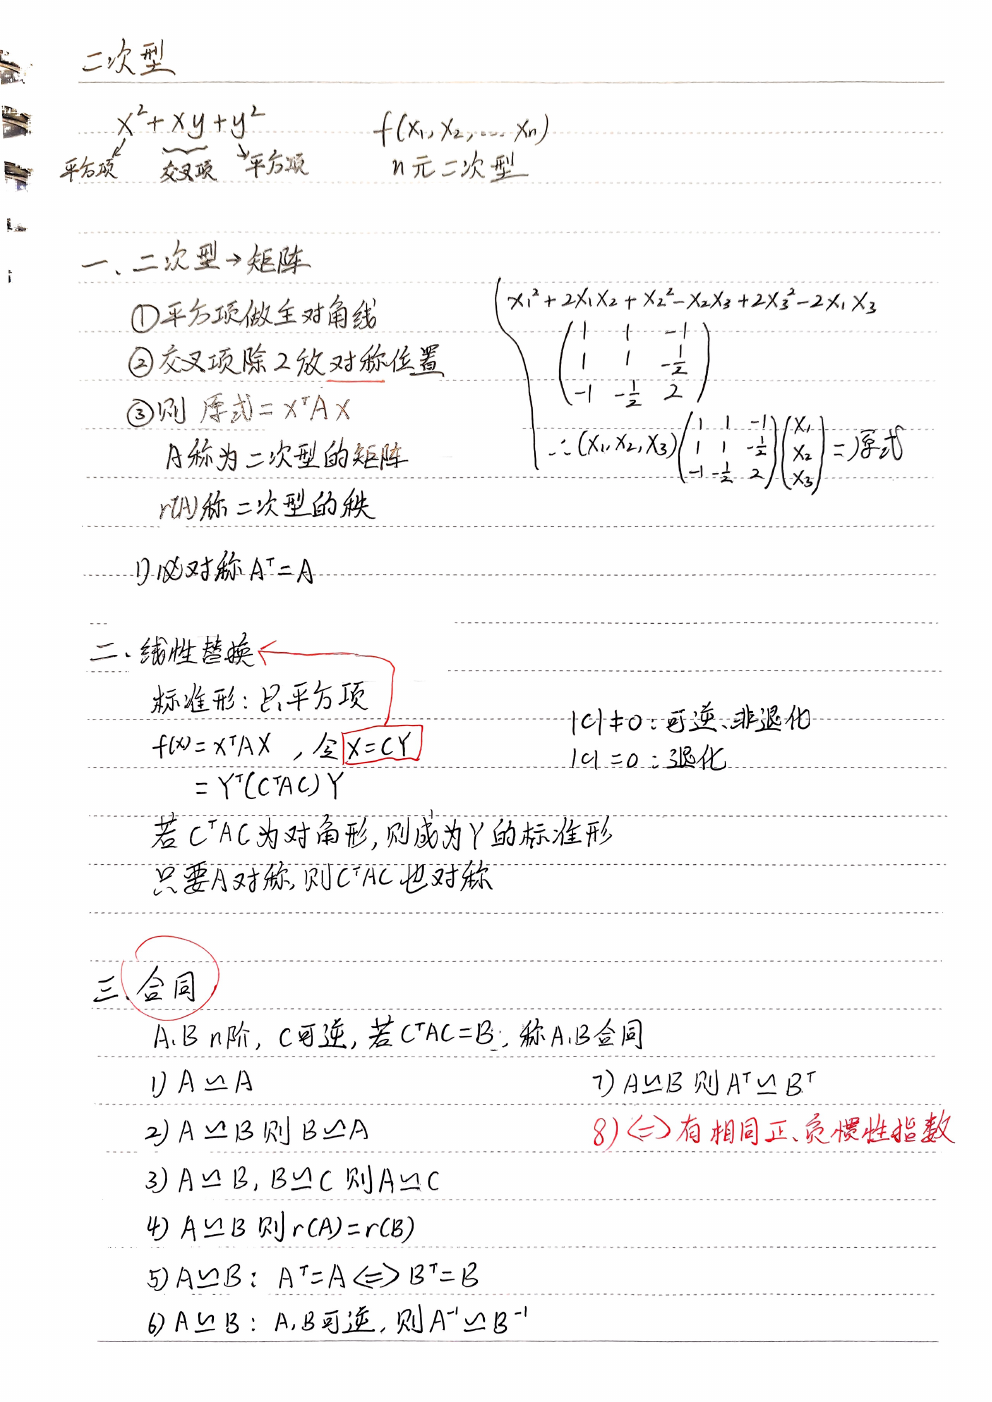 二次型
x²+xy+y²
平方项 交叉项 平方项
f(x₁,x₂,…xₙ)
n元二次型
一、二次型→矩阵
①平方项做主对角线
②交叉项除2放对称位置
③则 原式=xᵀAx
A称为二次型的矩阵
r(A)称二次型的秩
x₁²+2x₁x₂+x₂²-x₂x₃+2x₃²-2x₁x₃
( 1 1 -1
1 1 -1/2
-1 -1/2 2 )
∴(x₁,x₂,x₃)( 1 1 -1 )( x₁ )
( 1 1 -1/2 )( x₂ )=原式
( -1 -1/2 2 )( x₃ )
1)必对称Aᵀ=A
二、线性替换
标准形:只平方项
f(x)=xᵀAX,令X=CY
=Yᵀ(CᵀAC)Y
|C|≠0:可逆、非退化
|C|=0:退化
若CᵀAC为对角形,则成为Y的标准形
只要A对称,则CᵀAC也对称
三、合同
A、B n阶,C可逆,若CᵀAC=B,称A、B合同
1) A≃A
2) A≃B则B≃A
3) A≃B,B≃C则A≃C
4) A≃B则r(A)=r(B)
5) A≃B:Aᵀ=A<=>Bᵀ=B
6) A≃B:A、B可逆,则A⁻¹≃B⁻¹
7) A≃B则Aᵀ≃Bᵀ
8) <=>有相同正、负惯性指数